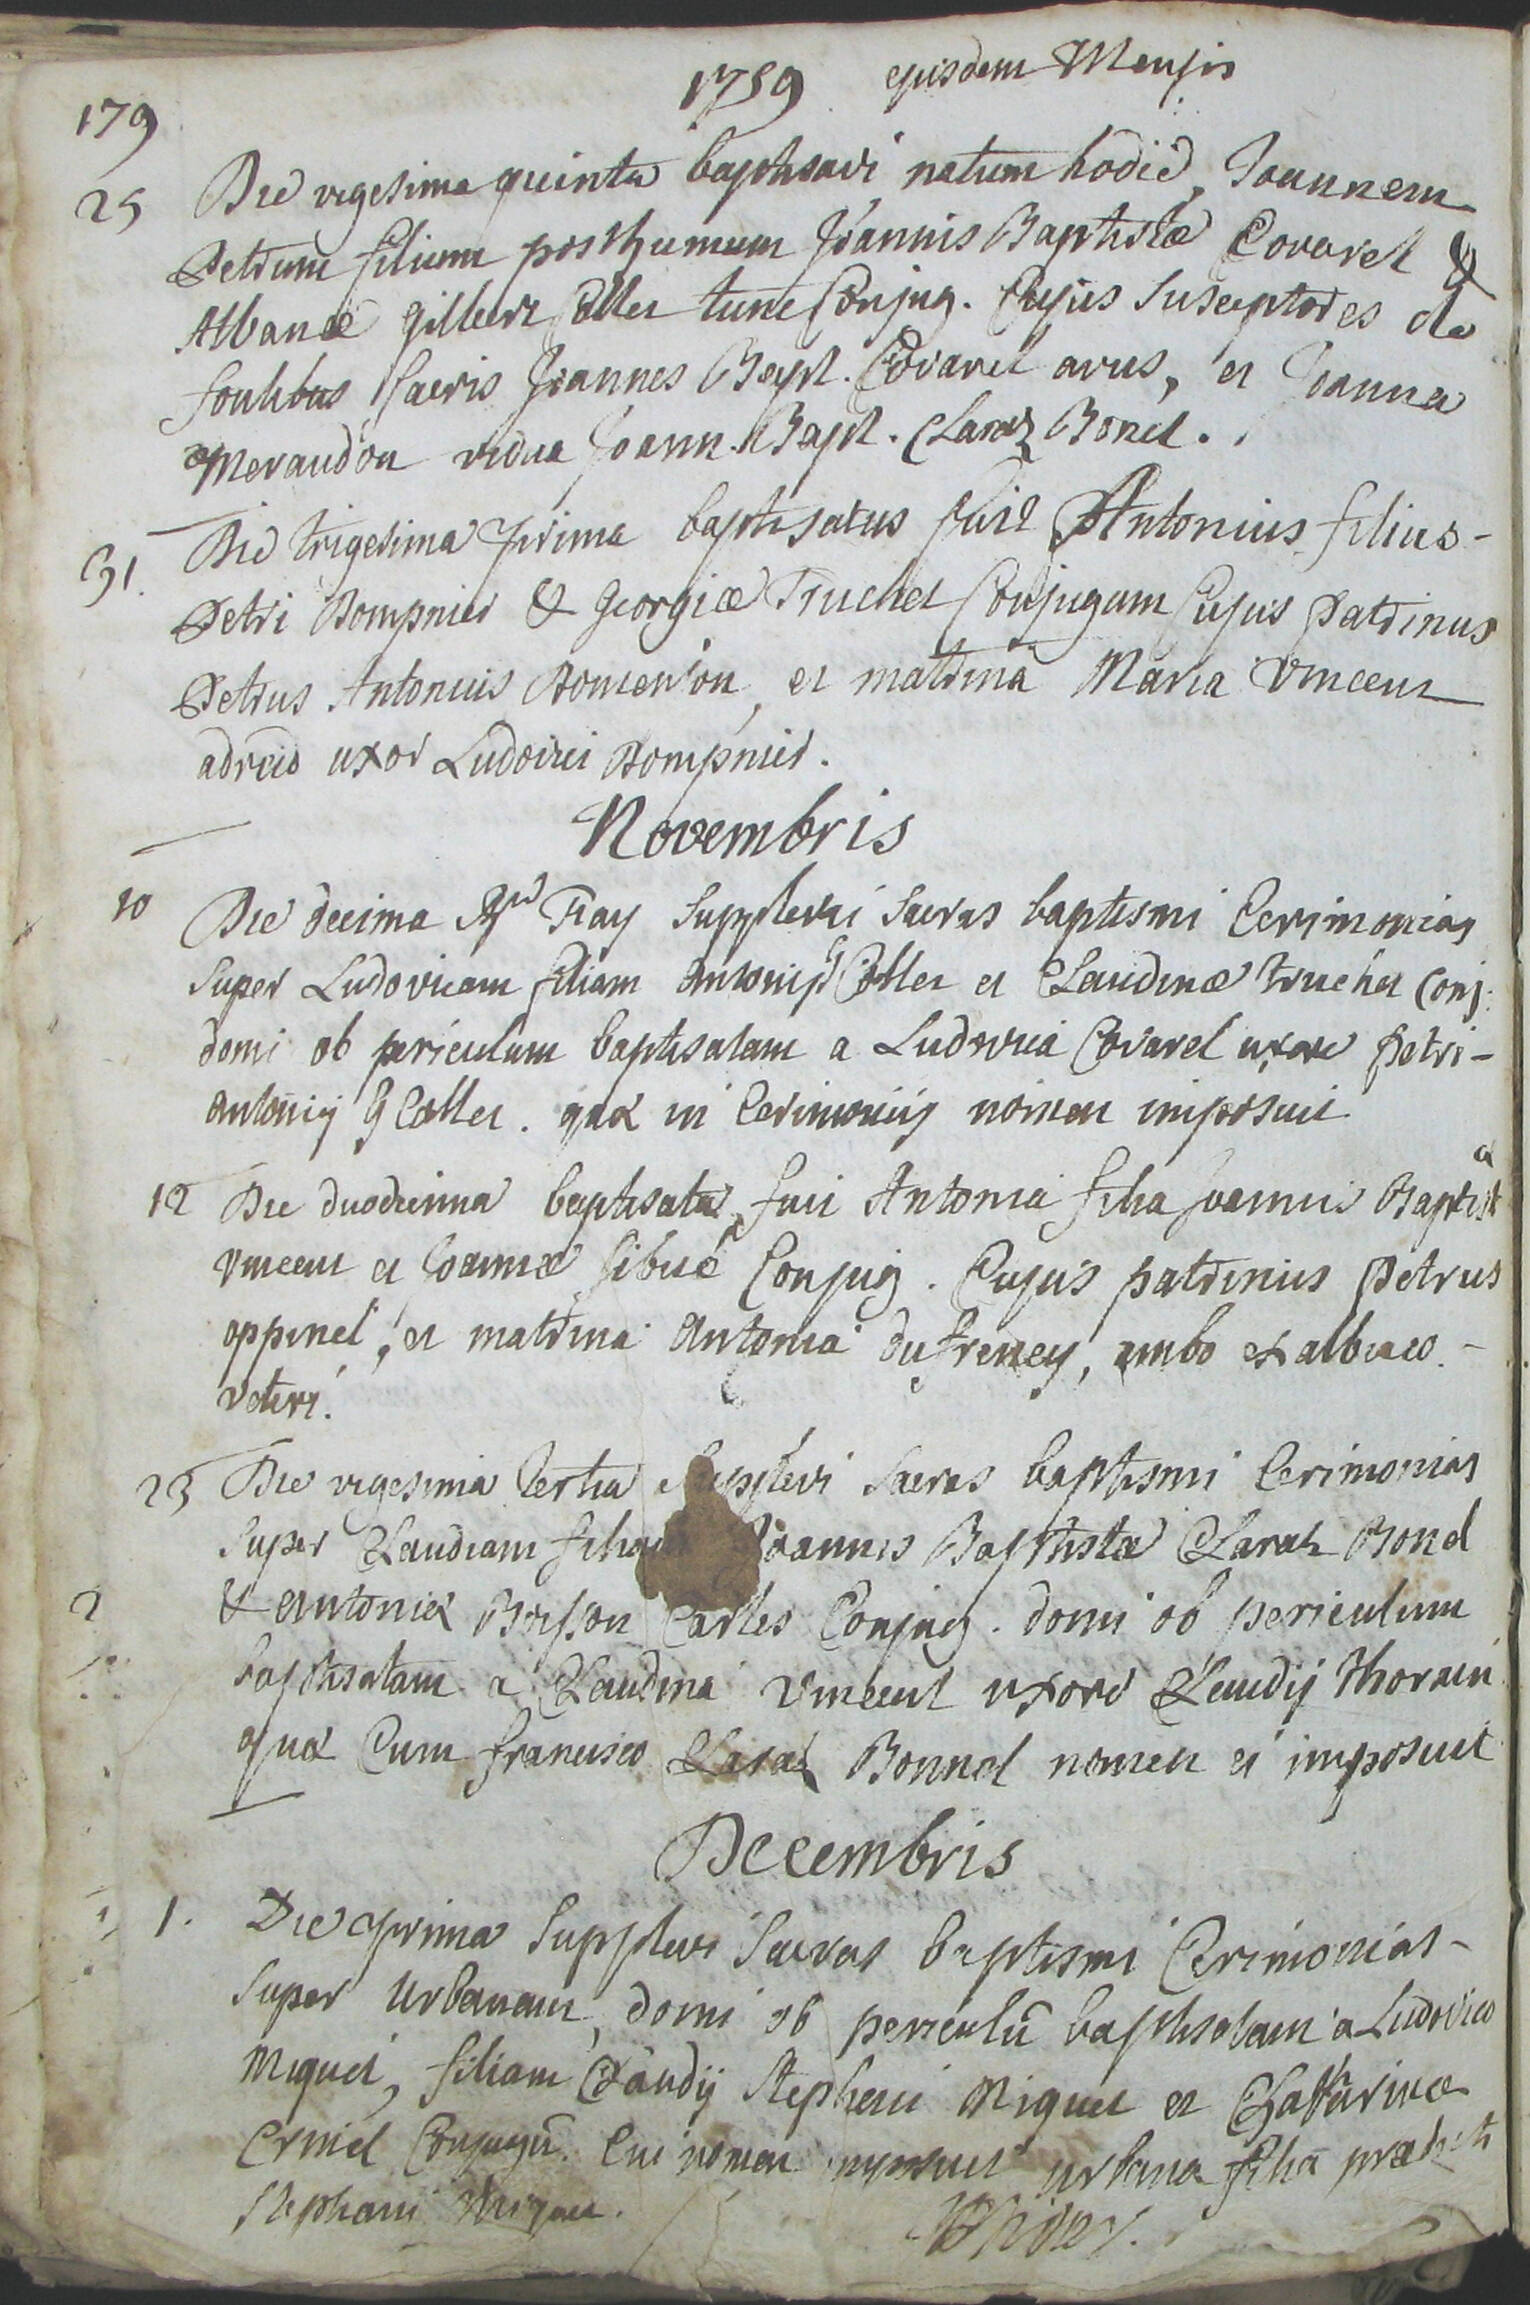 179
1759 ejusdem Mensis
25 Die vigesima quinta baptisavi natum hodie, Joannem
Petrum filium posthumum Joannis Baptistæ Covarel &
Albanæ Gilbert Collet tunc Conjug. Cujus Susceptores de
fontibus Sacris Joannes Bapt. Covarel avus, et Joanna
Meraudon vidua Joann. Bapt. Claraz Bonel.
31. Die trigesima prima baptisatus fuit Antonius filius -
Petri Bompnier & Georgiæ Truchet Conjugum Cujus Patrinus
Petrus Antonius Bomenson, et matrina Maria Vincent
uxor Ludovici Bompnier.
Novembris
10 Die decima Supplevi Sacras baptismi Cerimonias
Super Ludovicam filiam Antonij Collet et Claudinæ truchet Conj.
domi ob periculum baptisatam a Ludovica Covarel uxore Petri -
Antonij G Collet. quæ in Cerimoniis nomen imposuit
12 Die duodecima baptisata fuit Antonia filia Joannis Baptistæ
Vincent et Joannæ Sibué Conjug. Cujus patrinus Petrus
oppinel, et matrina Antonia dufreney, ambo ex albiaco -
veteri.
23 Die vigesima tertia Supplevi Sacras baptismi Cerimonias
Super Claudiam filiam Joannis Baptistæ Claraz Bonel
& Antoniæ Boisson Carles Conjug. domi ob periculum
baptisatam a Claudina Vincent uxore Claudij thorain
quæ Cum francisco Claraz Bonnel nomen ei imposuit
Decembris
1. Die prima Supplevi Sacras baptismi Cerimonias -
Super Urbanam, domi ob periculũ baptisatam a Ludovico
Miquet, filiam Claudij Stephani Miquet et Chatarinæ
Ernid Conjugũ. Cui nomen imposuit urbana filia prædicti
Stephani Miquet.